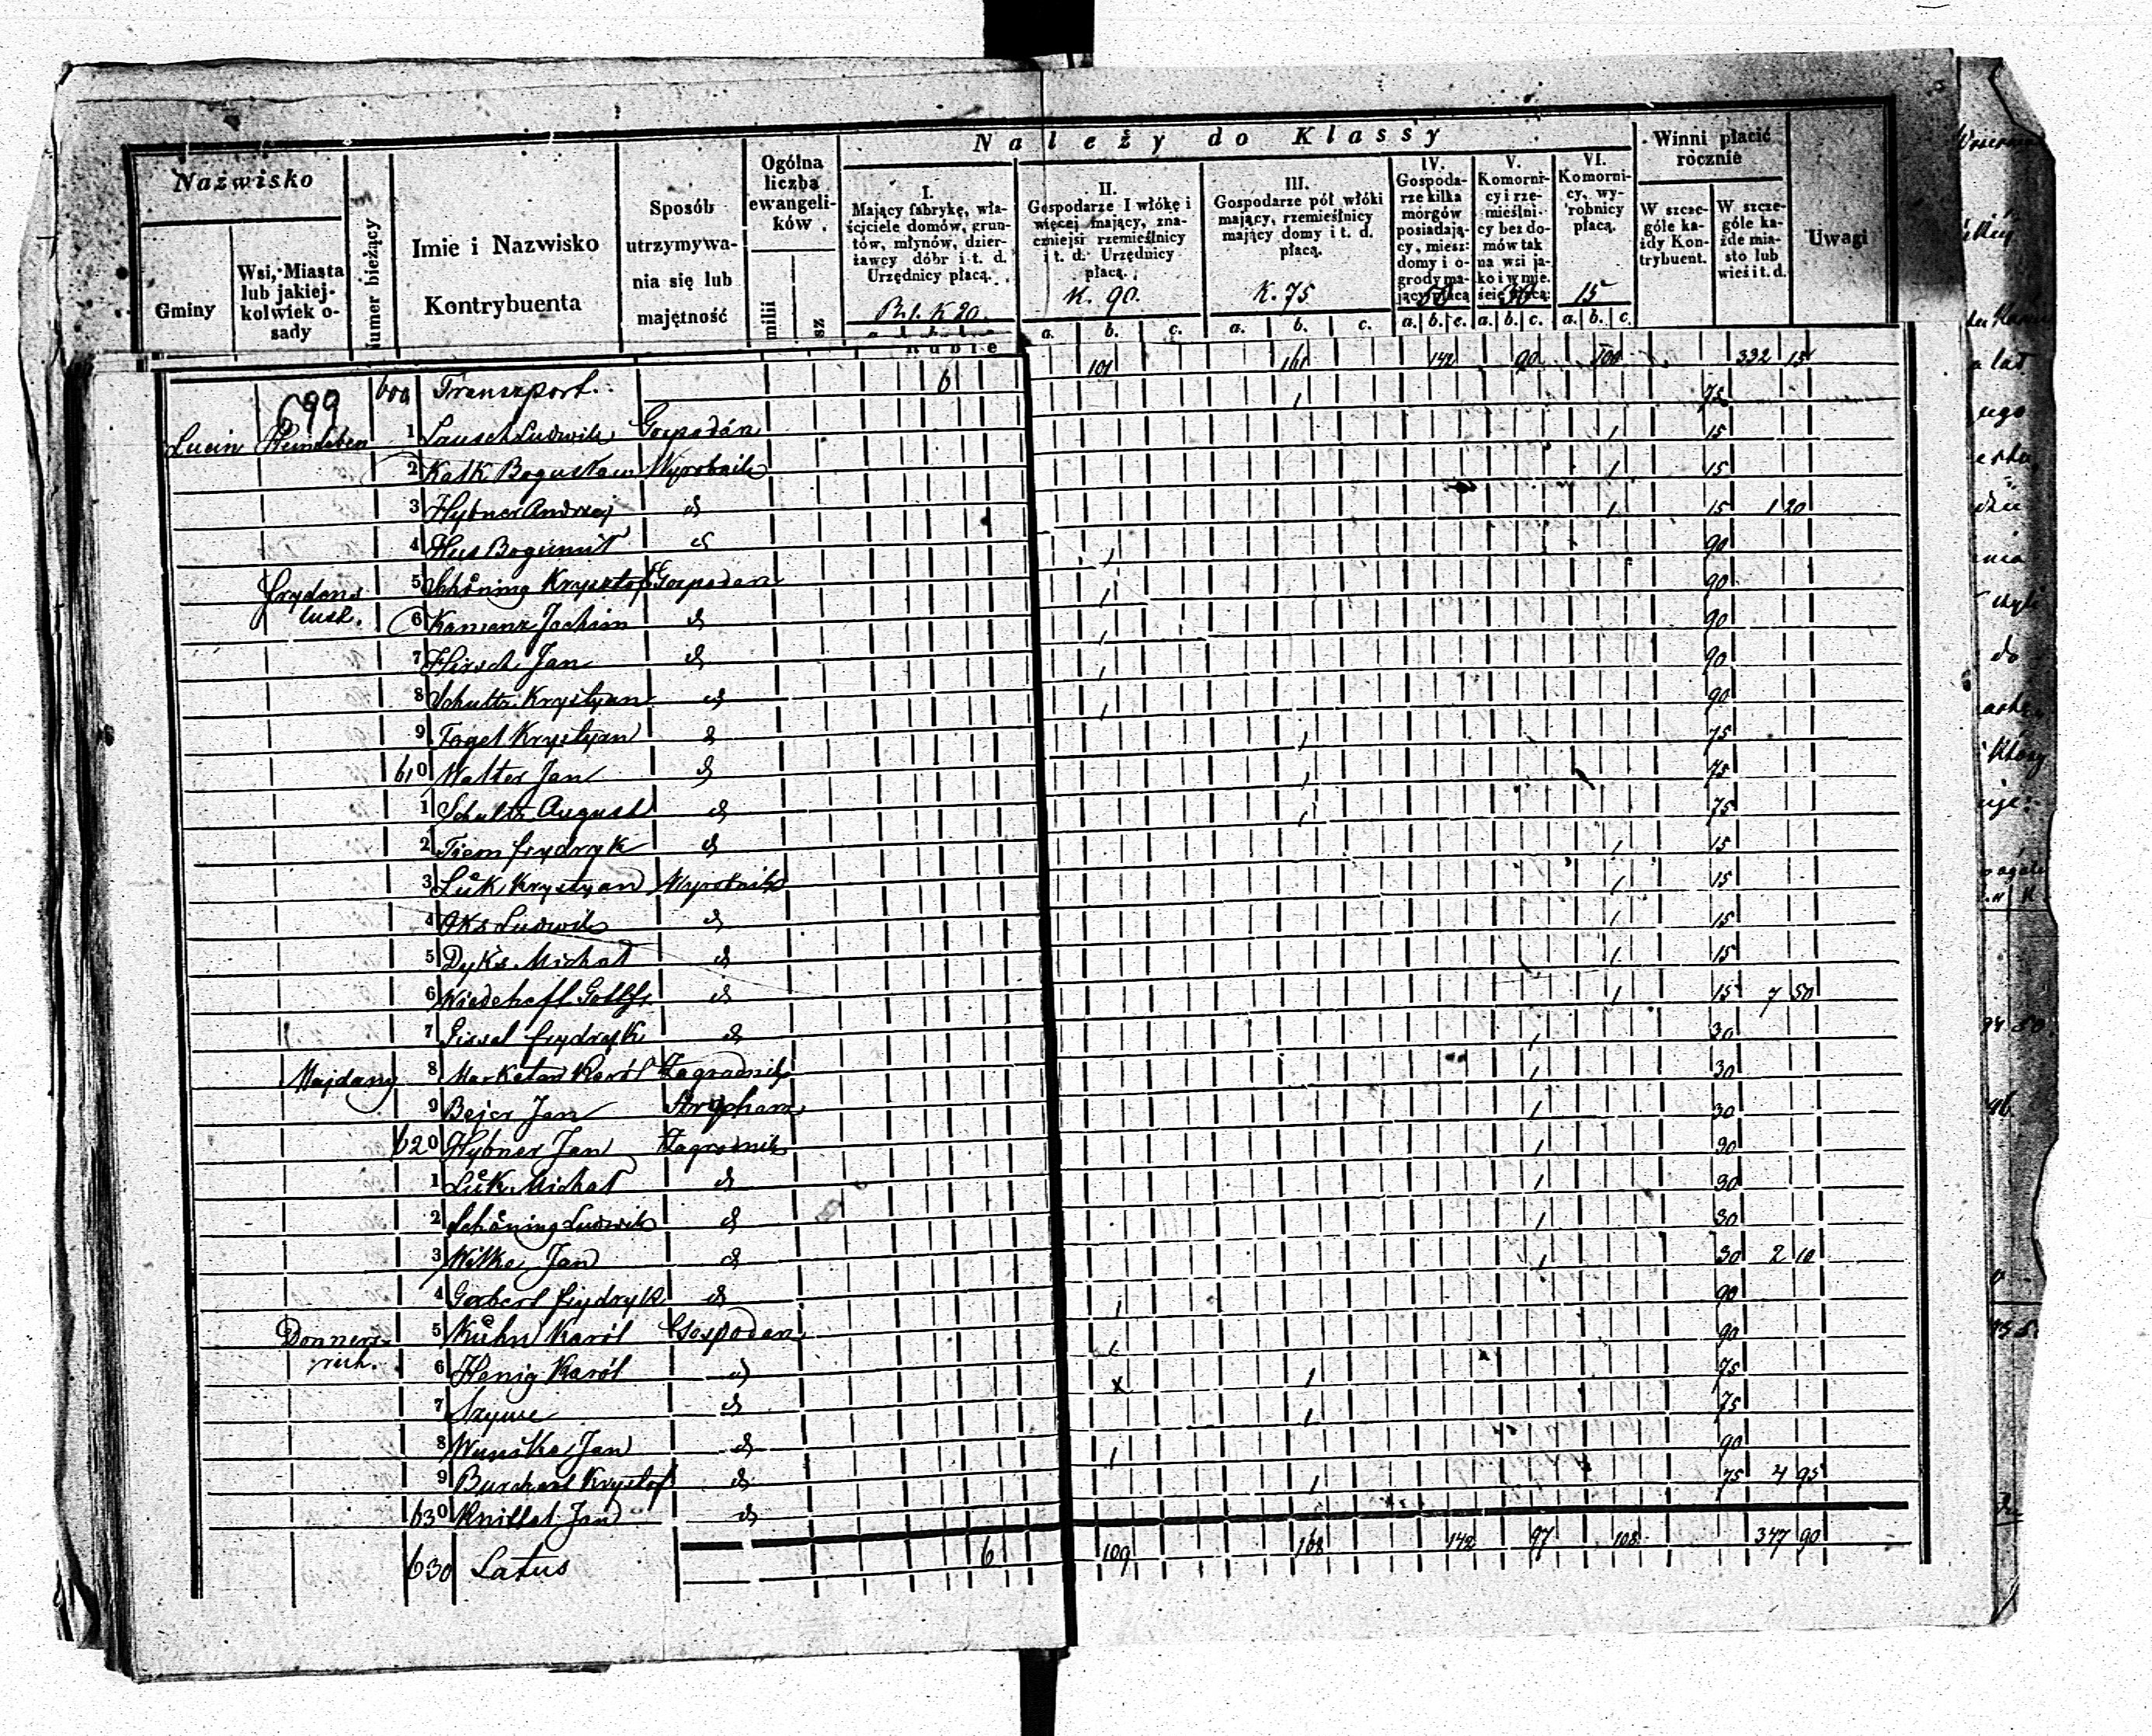 Należy do Klassy
Nazwisko
Gminy
Wsi, Miasta lub jakiejkolwiek osady
Numer bieżący
Imie i Nazwisko Kontrybuenta
Sposób utrzymywania się lub majętność
Ogólna liczba ewangelików
I. Mający fabrykę, właściciele domów, gruntów, młynów, dzierżawcy dóbr i t. d. Urzędnicy płacą.
II. Gospodarze 1 włókę i więcej mający, znaczniejsi rzemieślnicy i t. d. Urzędnicy płacą.
K. 90.
III. Gospodarze pół włóki mający, rzemieślnicy mający domy i t. d. płacą.
K. 75
IV. Gospodarze kilka morgów posiadający, miesz: domy i ogrody mający płacą
50
V. Komornicy i rzemieślnicy bez domów tak na wsi jako i w mieście płacą:
30
VI. Komornicy, wyrobnicy płacą.
15
Winni płacić rocznie
W szczególe każdy Kontrybuent.
W szczególe każde miasto lub wieś i t. d.
Uwagi
a. b. c. a. b. c. a. b. c. a. b. c. a. b. c.
Ruble
699 600 Transport 6 101 161 142 90 100 332 15
Lucin 1 Lausch Ludwik Gospodarz 1 75
2 Kalk Bogusław Wyrobnik 1 15
3 Hybner Andrzej d 1 15
4 Hus Bogumił d 1 15 1 20
Frydens 5 Schöning Krysztof Gospodarz 1 90
lust. 6 Kamenz Jochim d 1 90
7 Hirsch Jan d 1 90
8 Schultz Krystyan d 1 90
9 Foget Krystyan d 1 90
610 Walter Jan d 1 75
1 Schultz August d 1 75
2 Tiem Frydryk d 1 75
3 Lük Krystyan Wyrobnik 1 15
4 Oks Ludwik d 1 15
5 Dyks Michał d 1 15
6 Wiedehoft Gottfr. d 1 15
7 Gissel Frydryk d 1 15 7 50
Majdany 8 Marketan Karól Zagrodnik 1 30
9 Bejer Jan Strycharz 1 30
620 Hybner Jan Zagrodnik 1 30
1 Lük Michał d 1 30
2 Schöning Ludwik d 1 30
3 Wilke Jan d 1 30
4 Gerbert Frydryk d 1 30 2 10
Donners- 5 Kühn Karól Gospodarz 1 90
ruh. 6 Henig Karól d 1 90
7 d 1 75
8 Jan d 1 75
9 Burchart Krysztof d 1 90
630 Knillat Jan d 1 75 4 95
630 Latus 6 109 168 142 97 108 347 90